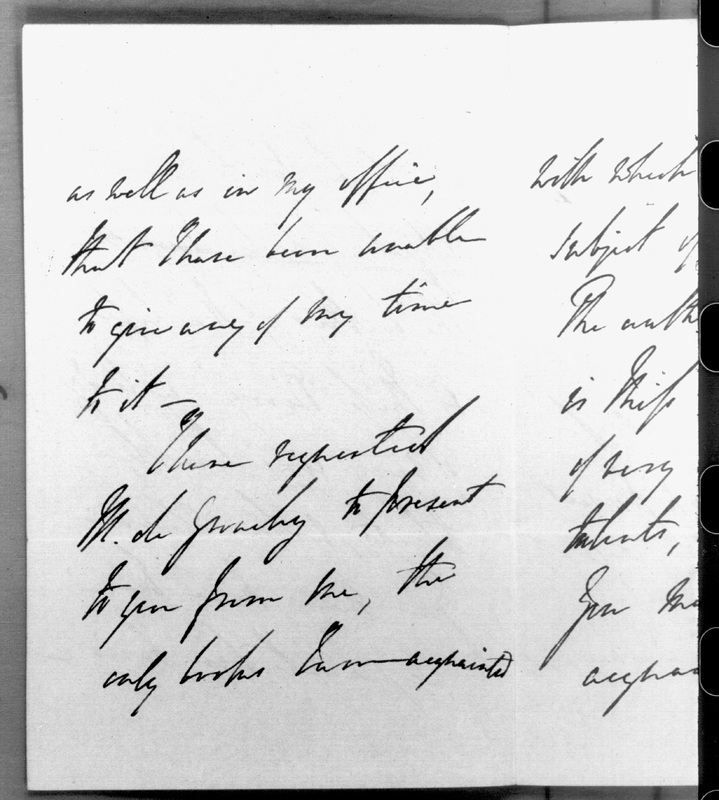 as well as in my office,
that I have been unable
to give any of my time
to it —
I have requested
M. de to present
to you from me, the
only books I am acquainted
with which
subject of
The auth
is Miss
of very
talents,
You ma
acqua